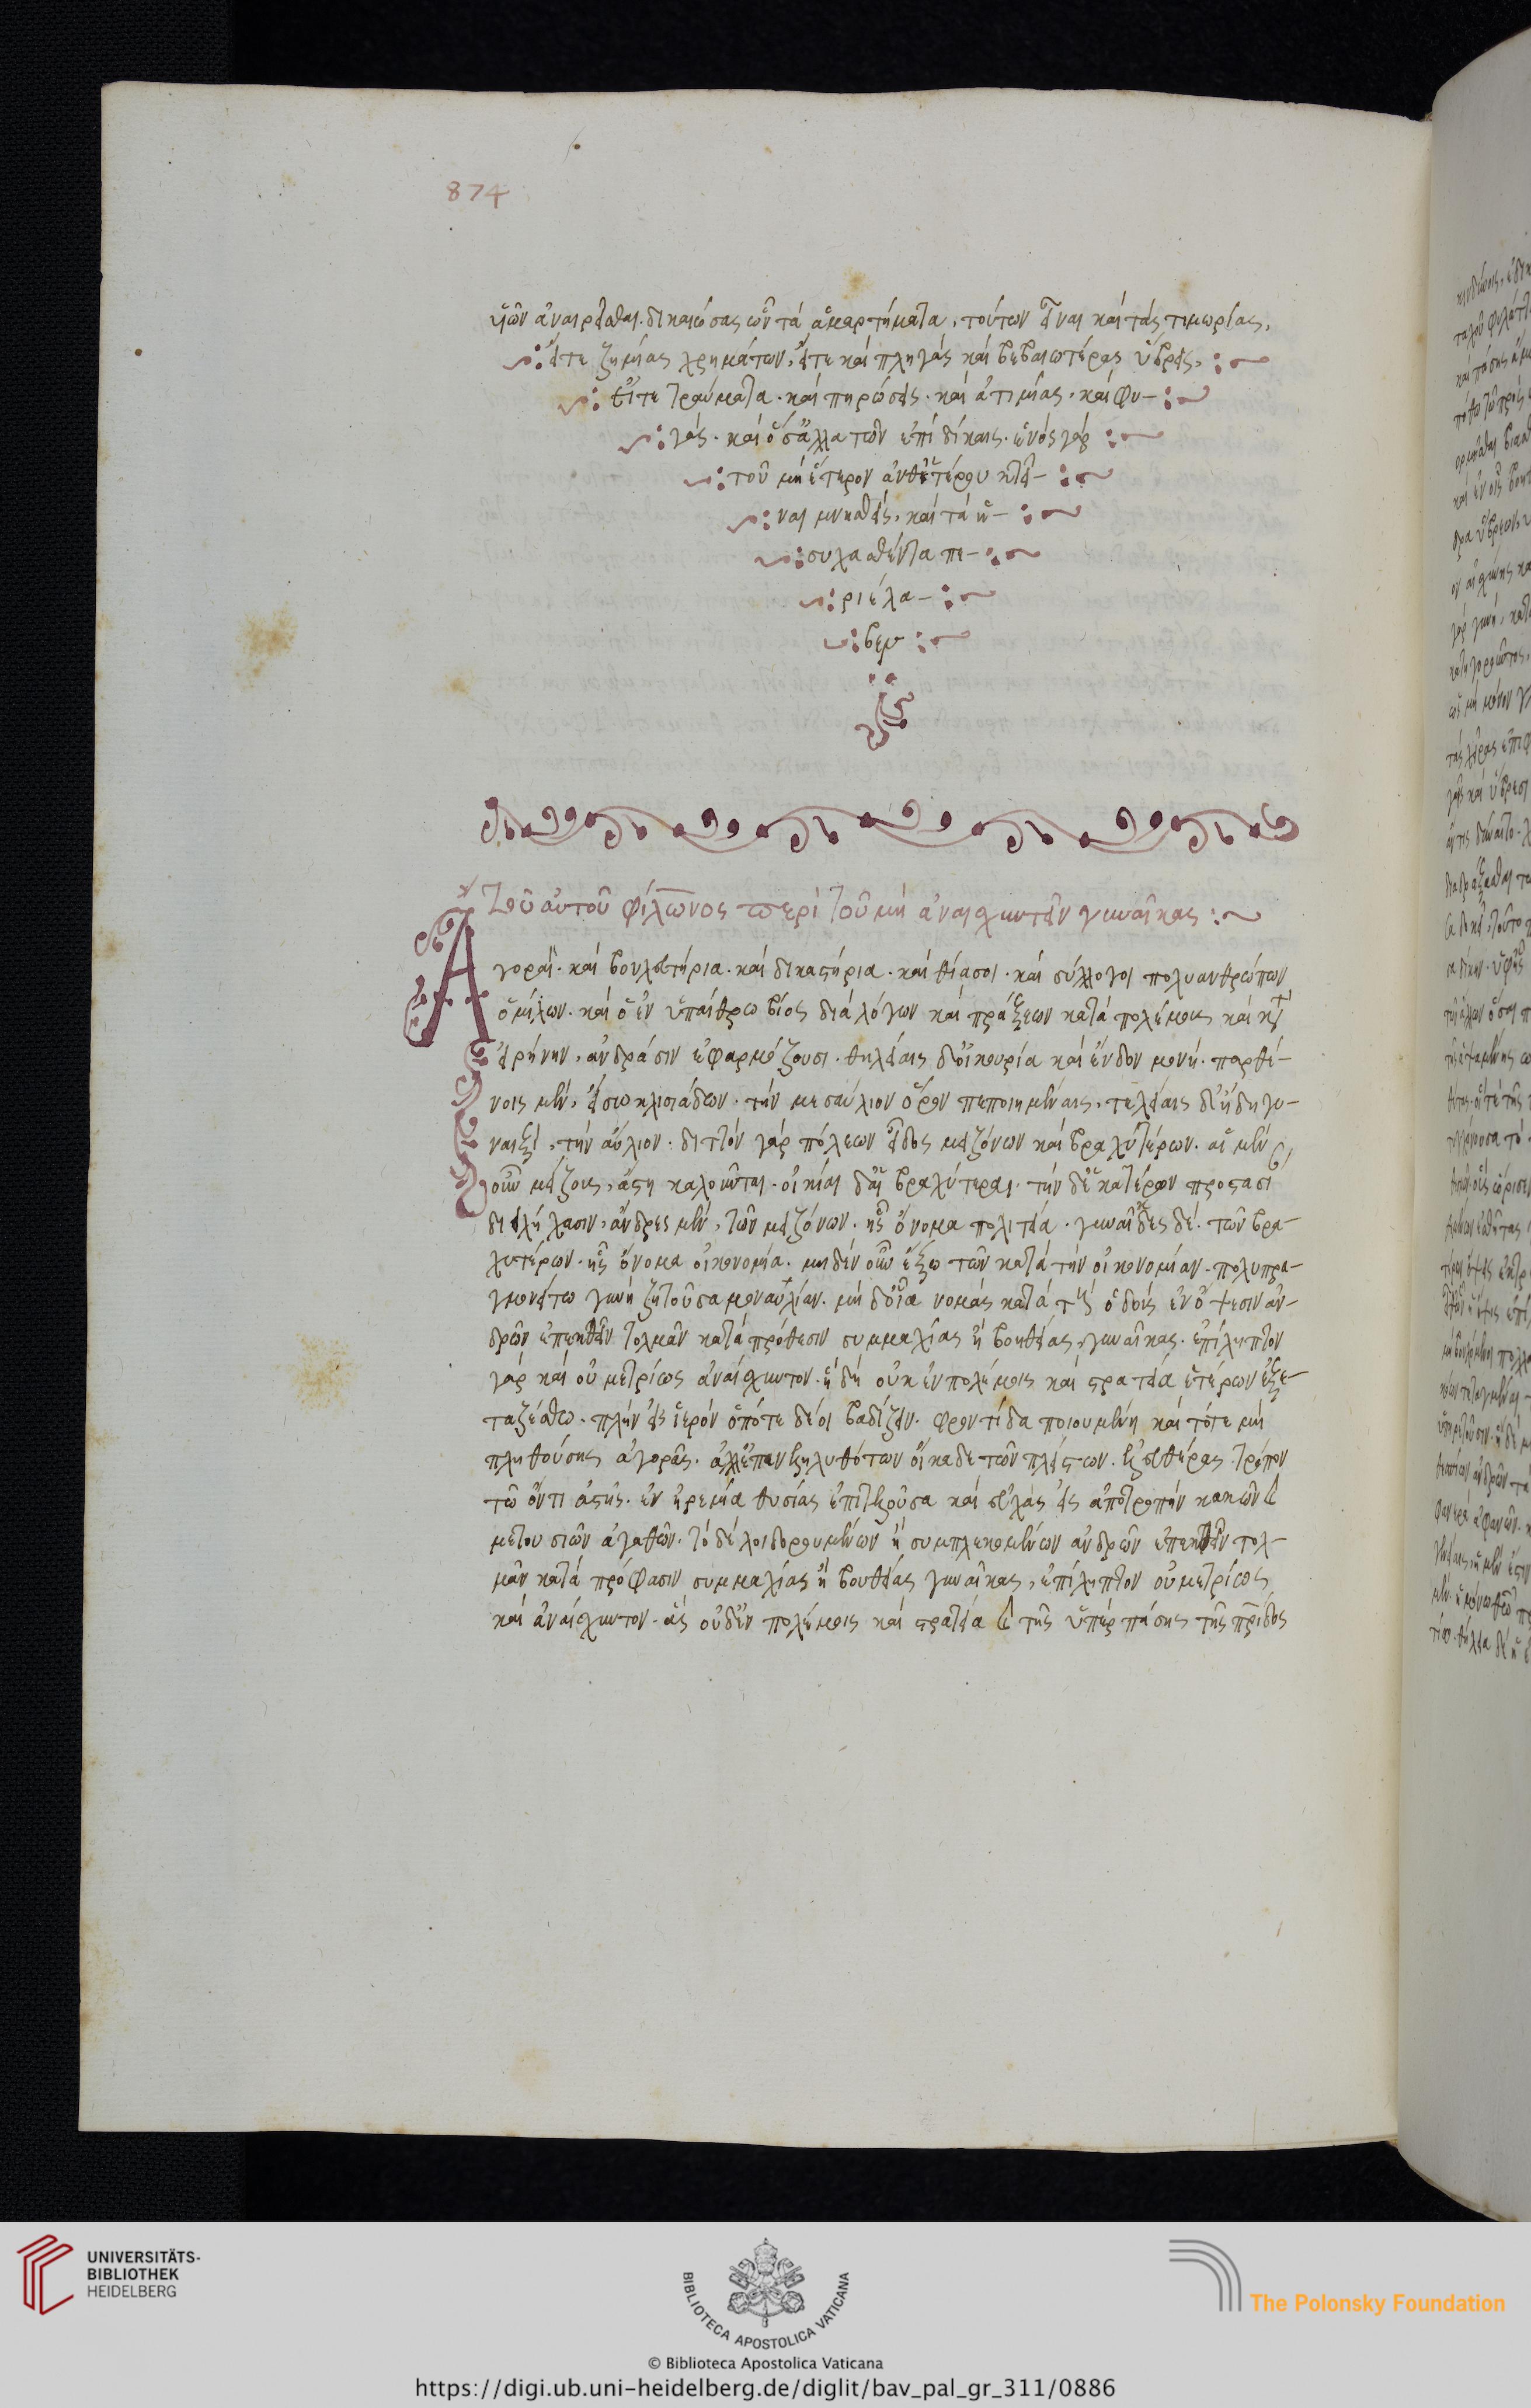 874
ὑιῶν ἀναιρεῖσθαι. δικαιώσας ὧν τὰ ἁμαρτήματα, τούτων εἶναι καὶ τὰς τιμωρίας,
εἴτε ζημίας χρημάτων, εἴτε καὶ πληγὰς καὶ βεβαιωτέρας ὕβρεις,
εἴτε τραύματα. καὶ πηρώσεις. καὶ ἀτιμίας. καὶ φυ-
γάς. καὶ ὅσ' ἄλλα τῶν ἐπὶ δίκαις. ἑνὸς γὰρ
τοῦ μὴ ἕτερον ἀνθ' ἑτέρου κτεῖ-
ναι μνησθεὶς, καὶ τὰ ἡ-
συχασθέντα πε-
ριέλα-
βεν
Τοῦ αὐτοῦ φίλωνος περὶ τοῦ μὴ ἀναισχυντεῖν γυναῖκας
Ἀγοραὶ. καὶ βουλευτήρια. καὶ δικαστήρια. καὶ θίασοι. καὶ σύλλογοι πολυανθρώπων
ὁμίλων. καὶ ὁ ἐν ὑπαίθρω βίος διὰ λόγων καὶ πράξεων κατὰ πολέμους καὶ κατ'
εἰρήνην, ἀνδράσιν ἐφαρμόζουσι. θηλείαις δ' οἰκουρία καὶ ἔνδον μονή. παρθέ-
νοις μὲν, εἴσω κλισιάδων. τὴν μεσαύλιον ὅρον πεποιημέναις, τελείαις δ' ἤδη γυ-
ναιξὶ, τὴν αὔλιον. διττὸν γὰρ πόλεων εἶδος μειζόνων καὶ βραχυτέρων. αἱ μὲν
οὖν μείζους, ἄστη καλοῦνται. οἰκίαι δ' αἱ βραχύτεραι. τὴν δ' ἑκατέρων προστασί
διειλήχασιν, ἄνδρες μὲν, τῶν μειζόνων. ἧς ὄνομα πολιτεία. γυναῖκες δὲ. τῶν βρα-
χυτέρων. ἧς ὄνομα οἰκονομία. μηδὲν οὖν ἔξω τῶν κατὰ τὴν οἰκονομίαν. πολυπρα-
γμονείτω γυνὴ ζητοῦσα μοναυλίαν. μὴ δ' οἷα νομὰς κατὰ τὰς ὁδοὺς ἐν ὄψεσιν ἀν-
δρῶν ἐπεκθεῖν τολμᾶν κατὰ πρόθεσιν συμμαχίας ἢ βοηθείας, γυναῖκας. ἐπίληπτον
γὰρ καὶ οὐ μετρίως ἀναίσχυντον. ἡ δὴ οὐκ ἐν πολέμοις καὶ στρατεία ἑτέρων ἐξε-
ταζέσθω. πλὴν εἰς ἱερὸν ὁπότε δέοι βαδίζειν. φροντίδα ποιουμένη καὶ τότε μὴ
πληθούσης ἀγορᾶς. ἀλλ' ἐπανεληλυθότων οἴκαδε τῶν πλείστων. ἐλευθέρας τρόπον
τῶ ὄντι ἀστῆς. ἐν ἠρεμία θυσίας ἐπιτελοῦσα καὶ εὐχὰς εἰς ἀποτροπὴν κακῶν
μετουσιῶν ἀγαθῶν. τὸ δὲ λοιδορουμένων ἢ συμπλεκομένων ἀνδρῶν ἐπεκθεῖν τολ-
μᾶν κατὰ πρόφασιν συμμαχίας ἢ βουθείας γυναῖκας, ἐπίληπτον οὐ μετρίως
καὶ ἀναίσχυντον. ἃς οὐδ' ἐν πολέμοις καὶ στρατεία τῆς ὑπὲρ πάσης τῆς πρίδος
UNIVERSITÄTS-
BIBLIOTHEK
HEIDELBERG
BIBLIOTECA APOSTOLICA VATICANA
The Polonsky Foundation
© Biblioteca Apostolica Vaticana
https://digi.ub.uni-heidelberg.de/diglit/bav_pal_gr_311/0886